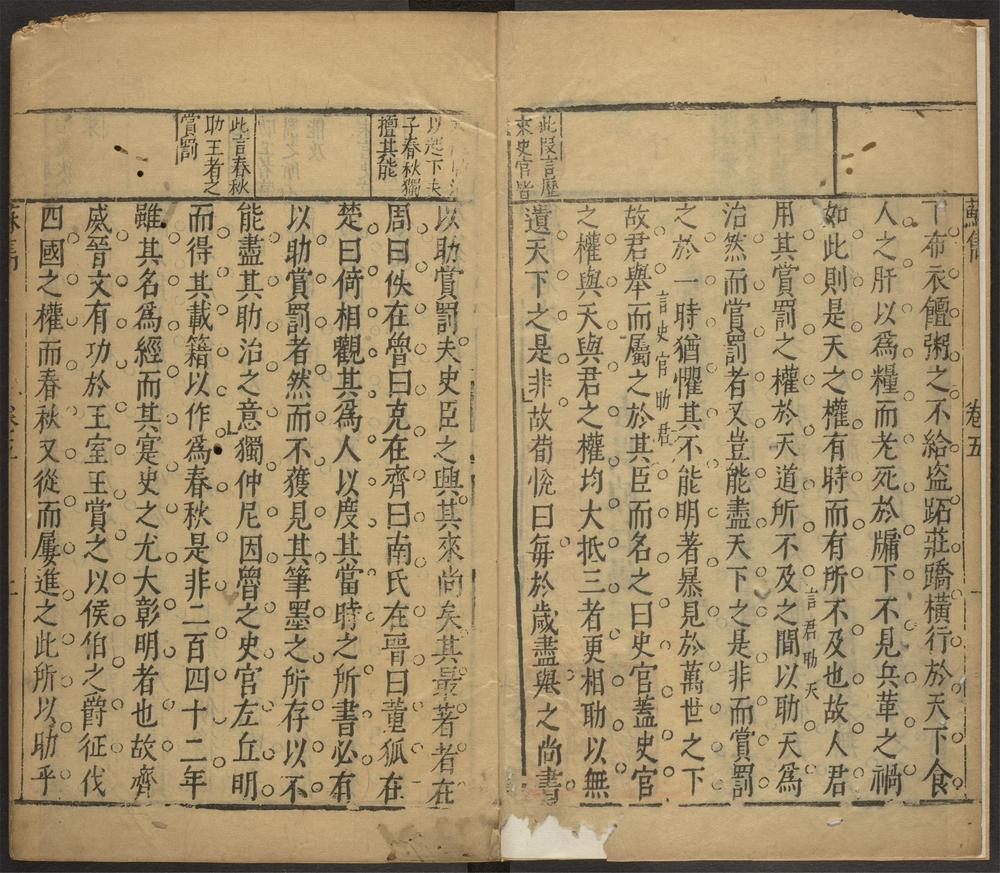 蘇雋
卷五
下布衣饘粥之不給盜跖莊蹻橫行於天下食
人之肝以爲糧而老死於牖下不見兵革之禍
如此則是天之權有時而有所不及也故人君
用其賞罰之權於天道所不及之間以助天爲
言君助天
治然而賞罰者又豈能盡天下之是非而賞罰
之於一時猶懼其不能明著暴見於萬世之下
言史官助君
故君舉而屬之於其臣而名之曰史官蓋史官
之權與天與君之權均大抵三者更相助以無
此叚言歷
來史官皆
遺天下之是非故荀悅曰每於歲盡舉之尚書
以起下夫
子春秋獨
擅其能
以助賞罰夫史臣之興其來尚矣其最著者在
周曰佚在魯曰克在齊曰南氏在晉曰董狐在
楚曰倚相觀其爲人以度其當時之所書必有
以助賞罰者然而不獲見其筆墨之所存以不
此言春秋
助王者之
賞罰
能盡其助治之意獨仲尼因魯之史官左丘明
而得其載籍以作爲春秋是非二百四十二年
雖其名爲經而其寔史之尤大彰明者也故齊
威晉文有功於王室王賞之以侯伯之爵征伐
四國之權而春秋又從而屢進之此所以助乎